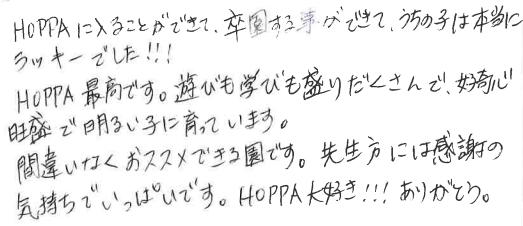 HOPPAに入ることができて、卒園する事ができて、うちの子は本当に
ラッキーでした!!!
HOPPA最高です。遊びも学びも盛りだくさんで、好奇心
旺盛で明るい子に育っています。
間違いなくおススメできる園です。先生方には感謝の
気持ちでいっぱいです。HOPPA大好き!!!ありがとう。